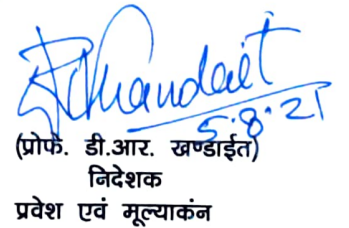 DRKhandait
5.8.21
(प्रोफे. डी.आर. खण्डाईत)
निदेशक
प्रवेश एवं मूल्याकंन